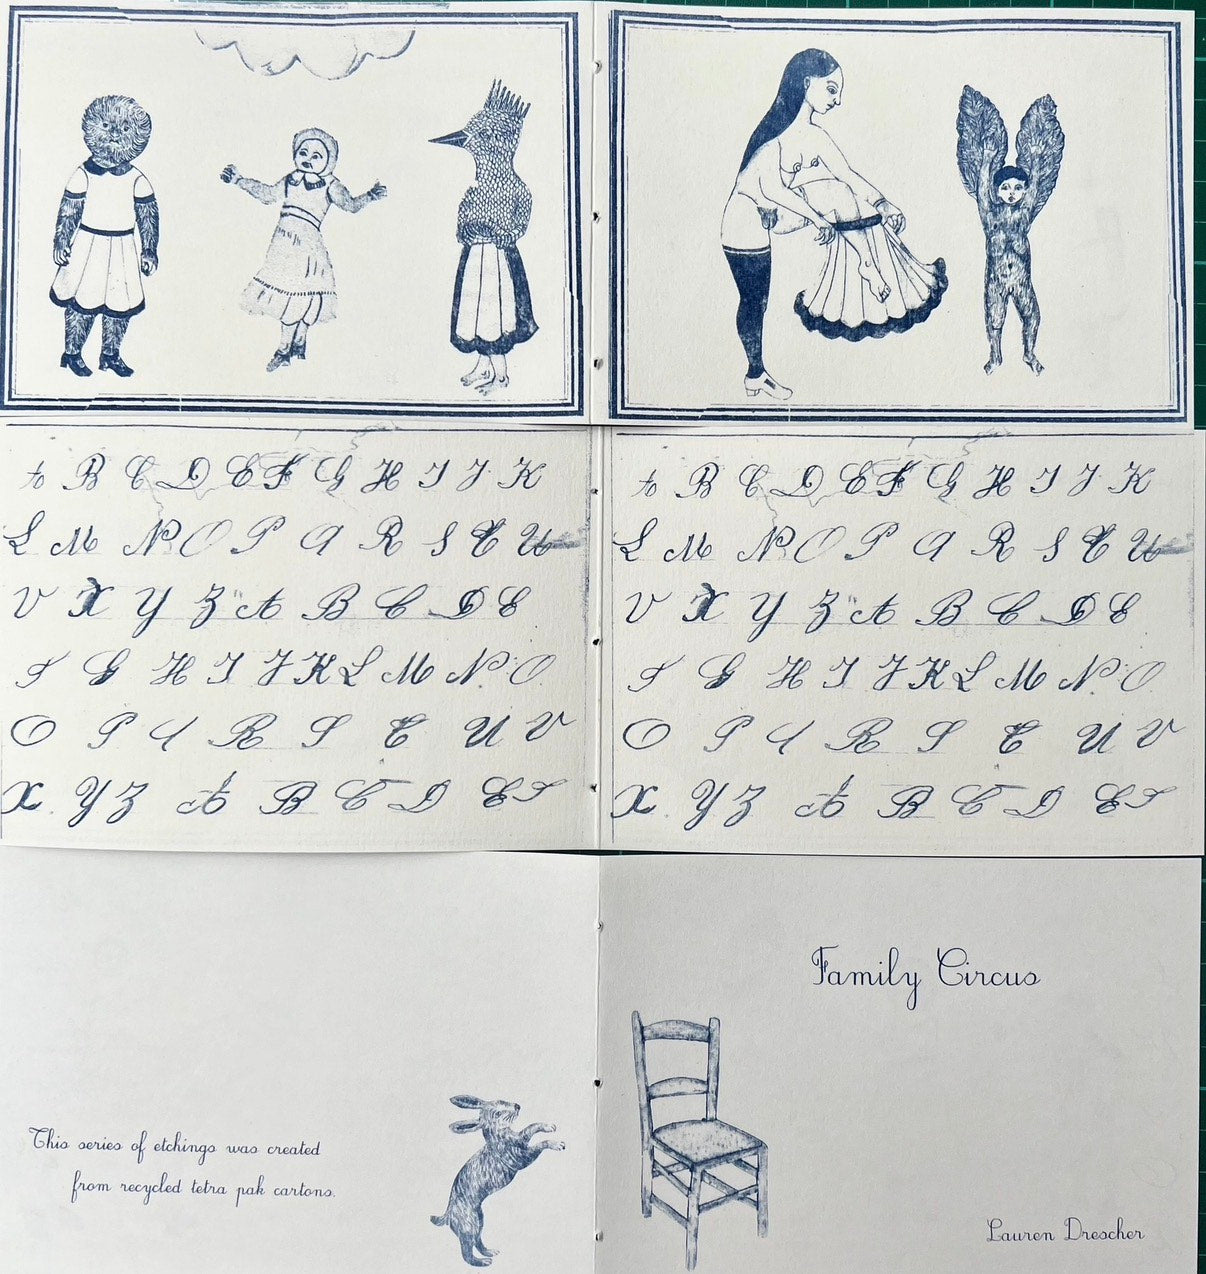 A B C D E F G H I J K
L M N O P Q R S T U
V X Y Z A B C D E
F G H I J K L M N O
O P Q R S T U V
X Y Z A B C D E F
A B C D E F G H I J K
L M N O P Q R S T U
V X Y Z A B C D E
F G H I J K L M N O
O P Q R S T U V
X Y Z A B C D E F
This series of etchings was created
from recycled tetra pak cartons.
Family Circus
Lauren Drescher